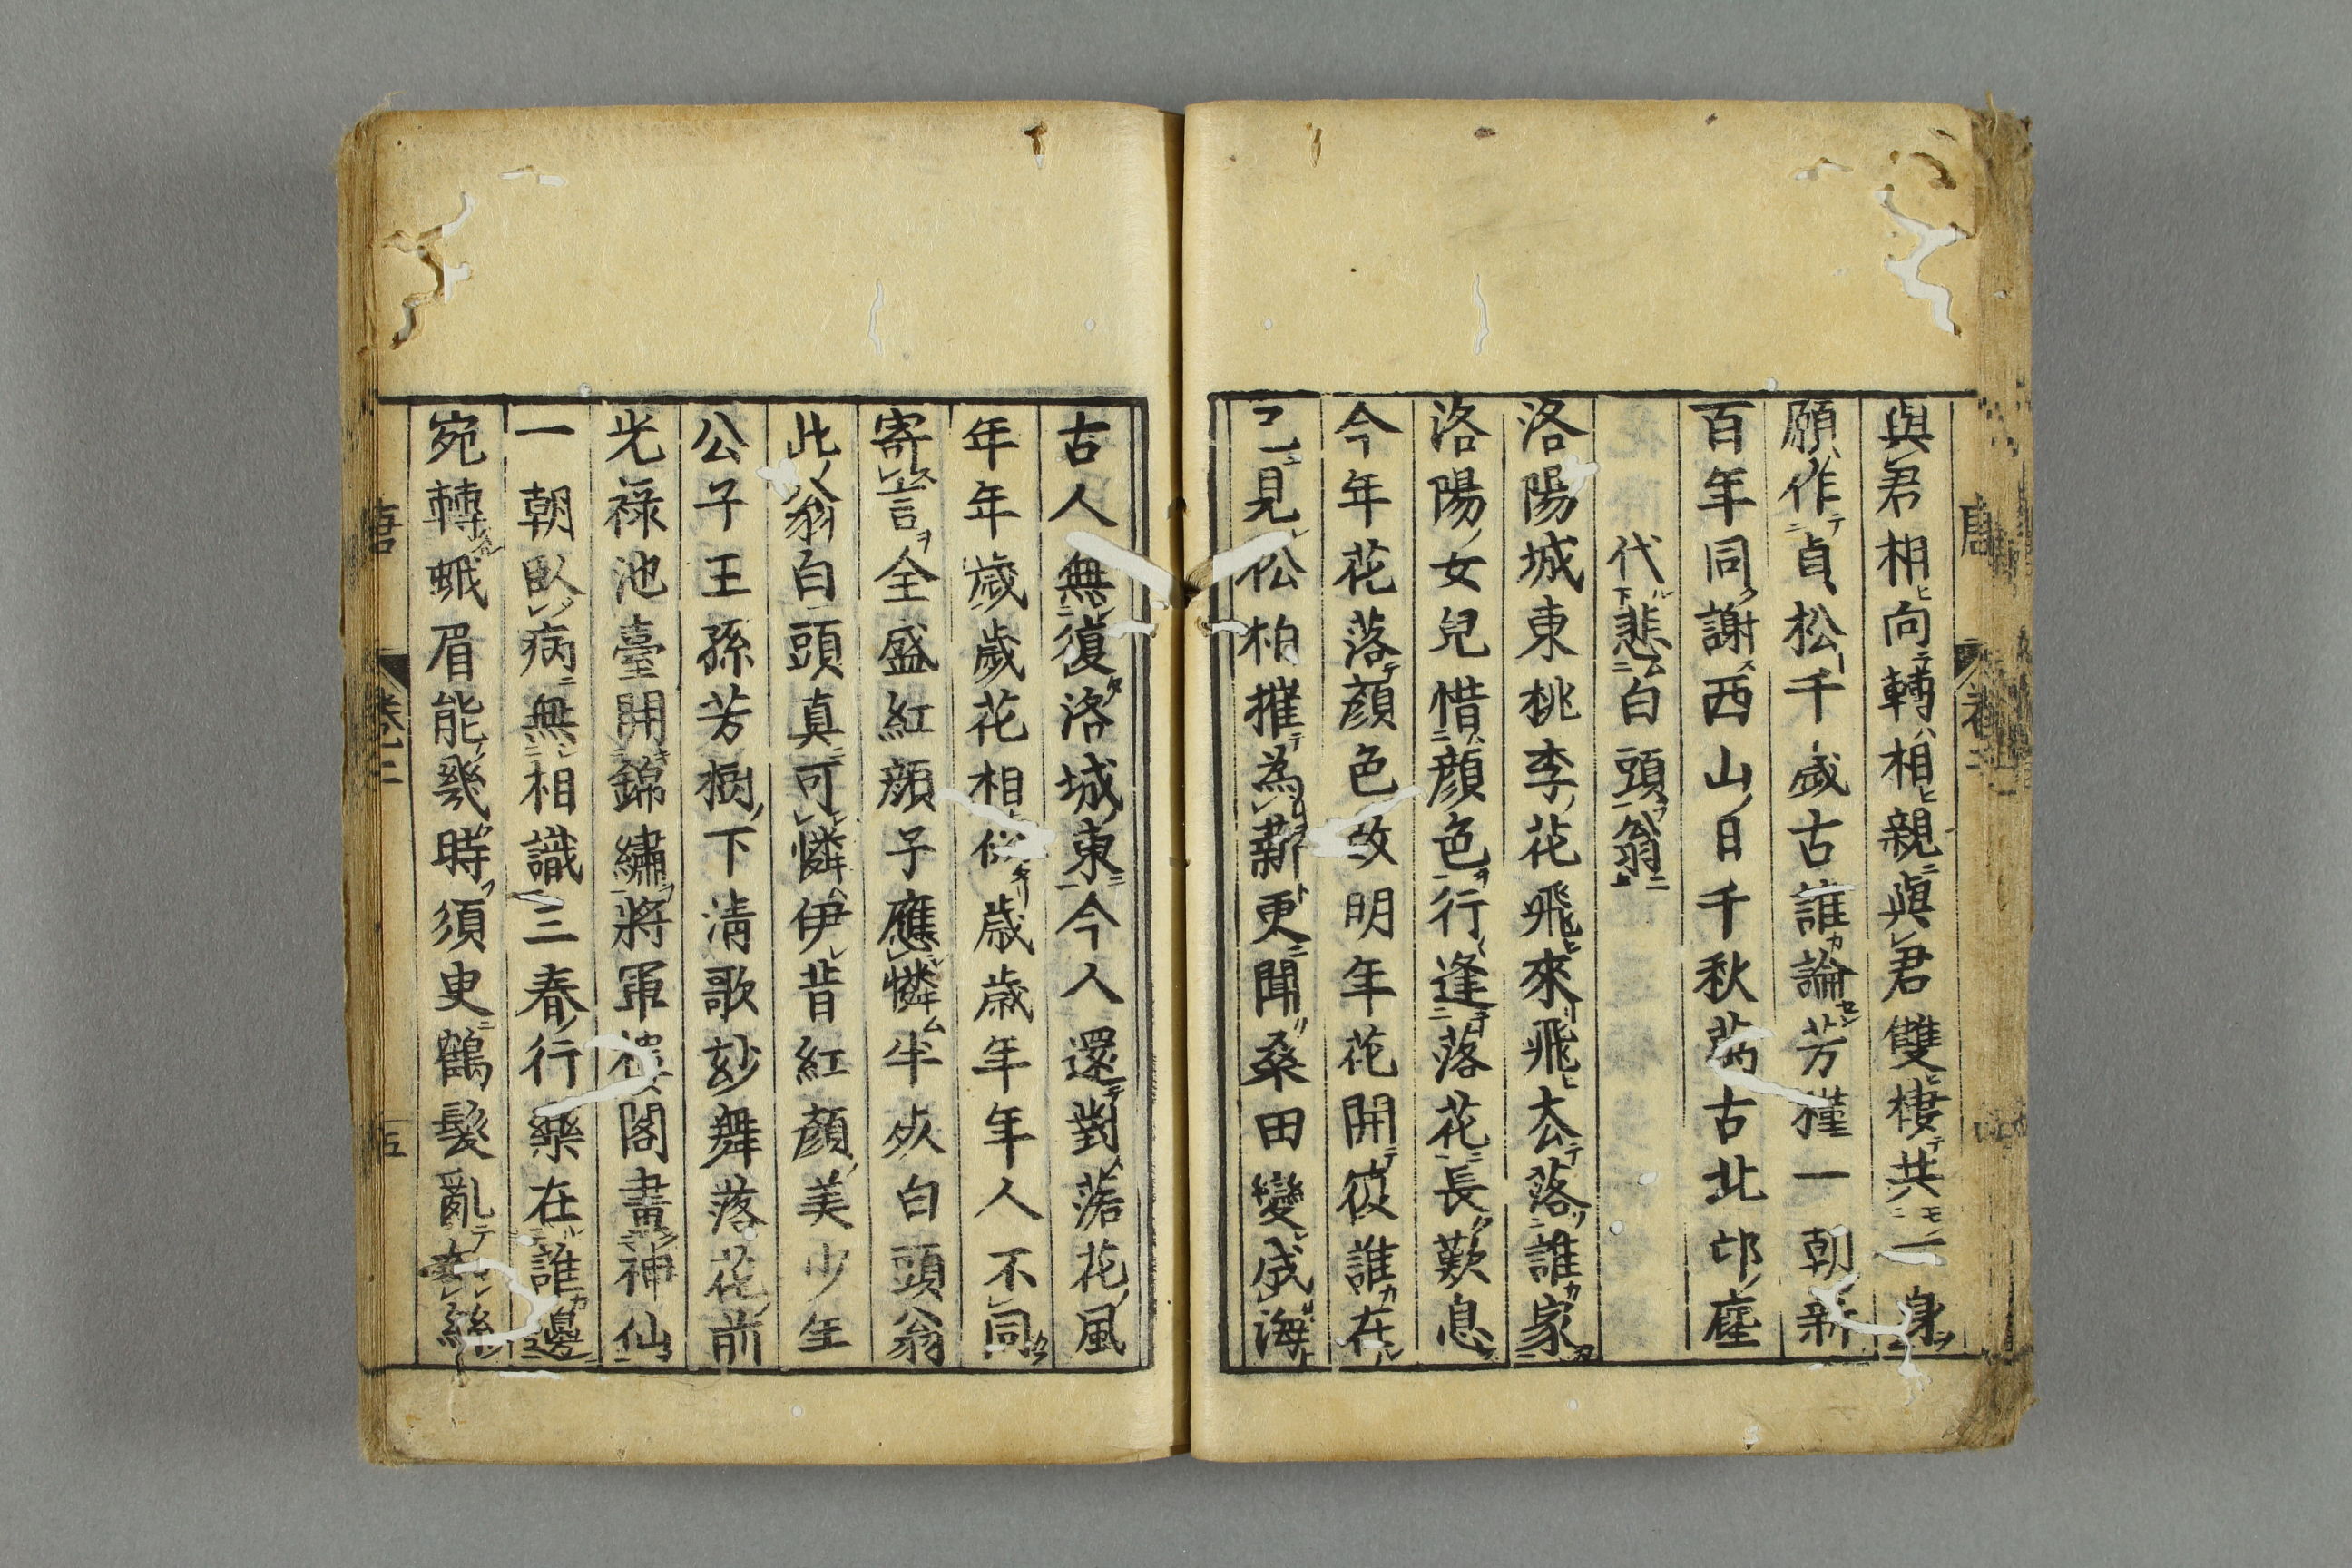 與君相向轉相親與君雙棲共一身
願作貞松千歲古誰論芳槿一朝新
百年同謝西山日千秋萬古北邙塵
代悲白頭翁
洛陽城東桃李花飛來飛去落誰家
洛陽女兒惜顔色行逢落花長歎息
今年花落顔色改明年花開復誰在
已見松柏摧為薪更聞桑田變成海
古人無復洛城東今人還對落花風
年年歲歲花相似歲歲年年人不同
寄言全盛紅顔子應憐半死白頭翁
此翁白頭真可憐伊昔紅顔美少年
公子王孫芳樹下清歌妙舞落花前
光祿池臺開錦繡將軍樓閣畫神仙
一朝臥病無相識三春行樂在誰邊
宛轉蛾眉能幾時須臾鶴髮亂如絲
唐
卷二
五